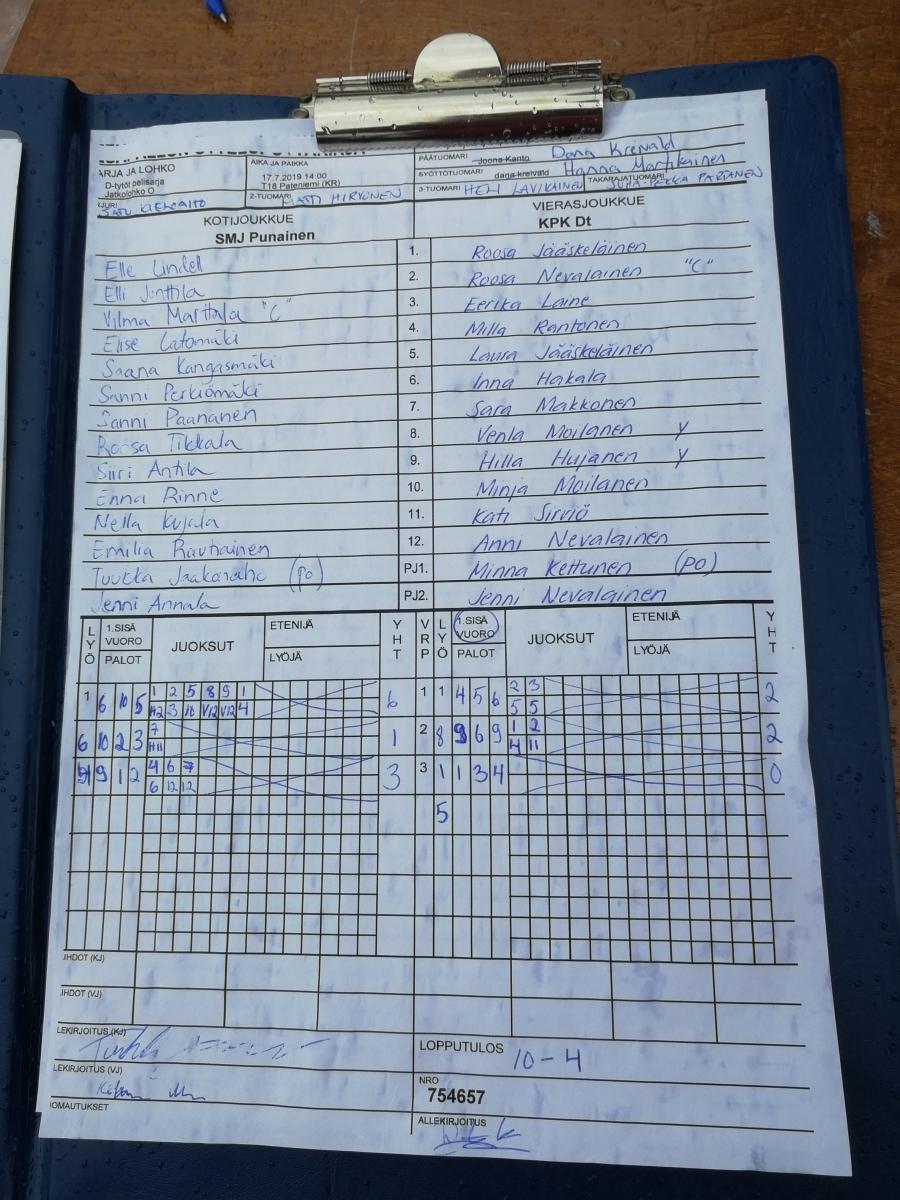 ARJA JA LOHKO
D-tytöt pelisarja
Jatkolohko O
AIKA JA PAIKKA
17.7.2019 14:00
T18 Pateniemi (KR)
2-TUOMARI MATTI HIRVONEN
PÄÄTUOMARI Joona Kanto Dana Kreivald
SYÖTTÖTUOMARI dana kreivald Hanna Martikainen
3-TUOMARI HELI LAVIKAINEN TAKARAJATUOMARI JUHA-PEKKA PARTANEN
KOTIJOUKKUE
SMJ Punainen
VIERASJOUKKUE
KPK Dt
Elle Lindell 1. Roosa Jääskeläinen
Elli Junttila 2. Roosa Nevalainen "C"
Vilma Marttala "C" 3. Eerika Laine
Elise Latomäki 4. Milla Rantonen
Saana Kangasmäki 5. Laura Jääskeläinen
Sanni Perkiömäki 6. Inna Hakala
Sanni Paananen 7. Sara Makkonen
Roosa Tikkala 8. Venla Moilanen Y
Siiri Antila 9. Hilla Hujanen Y
Enna Rinne 10. Minja Moilanen
Nella Kujala 11. Kati Sirviö
Emilia Rauhainen 12. Anni Nevalainen
Tuukka Jaakonaho (po) PJ1. Minna Kettunen (po)
Jenni Annala PJ2. Jenni Nevalainen
LYÖ 1.SISÄ VUORO PALOT JUOKSUT ETENIJÄ LYÖJÄ YHT VRP LYÖ 1.SISÄ VUORO PALOT JUOKSUT ETENIJÄ LYÖJÄ YHT
1 6 10 5 1 2 5 8 9 1 6 1 1 4 5 6 2 3 2
3 10 V12 V12 4 5 5
6 10 2 3 7 1 2 8 9 6 9 1 2 2
H11 4 11
9 1 2 4 6 7 3 3 1 1 3 4 0
6 12 12
5
JHDOT (KJ)
JHDOT (VJ)
LEKIRJOITUS (KJ)
LOPPUTULOS 10-4
LEKIRJOITUS (VJ)
NRO
754657
OMAUTUKSET
ALLEKIRJOITUS